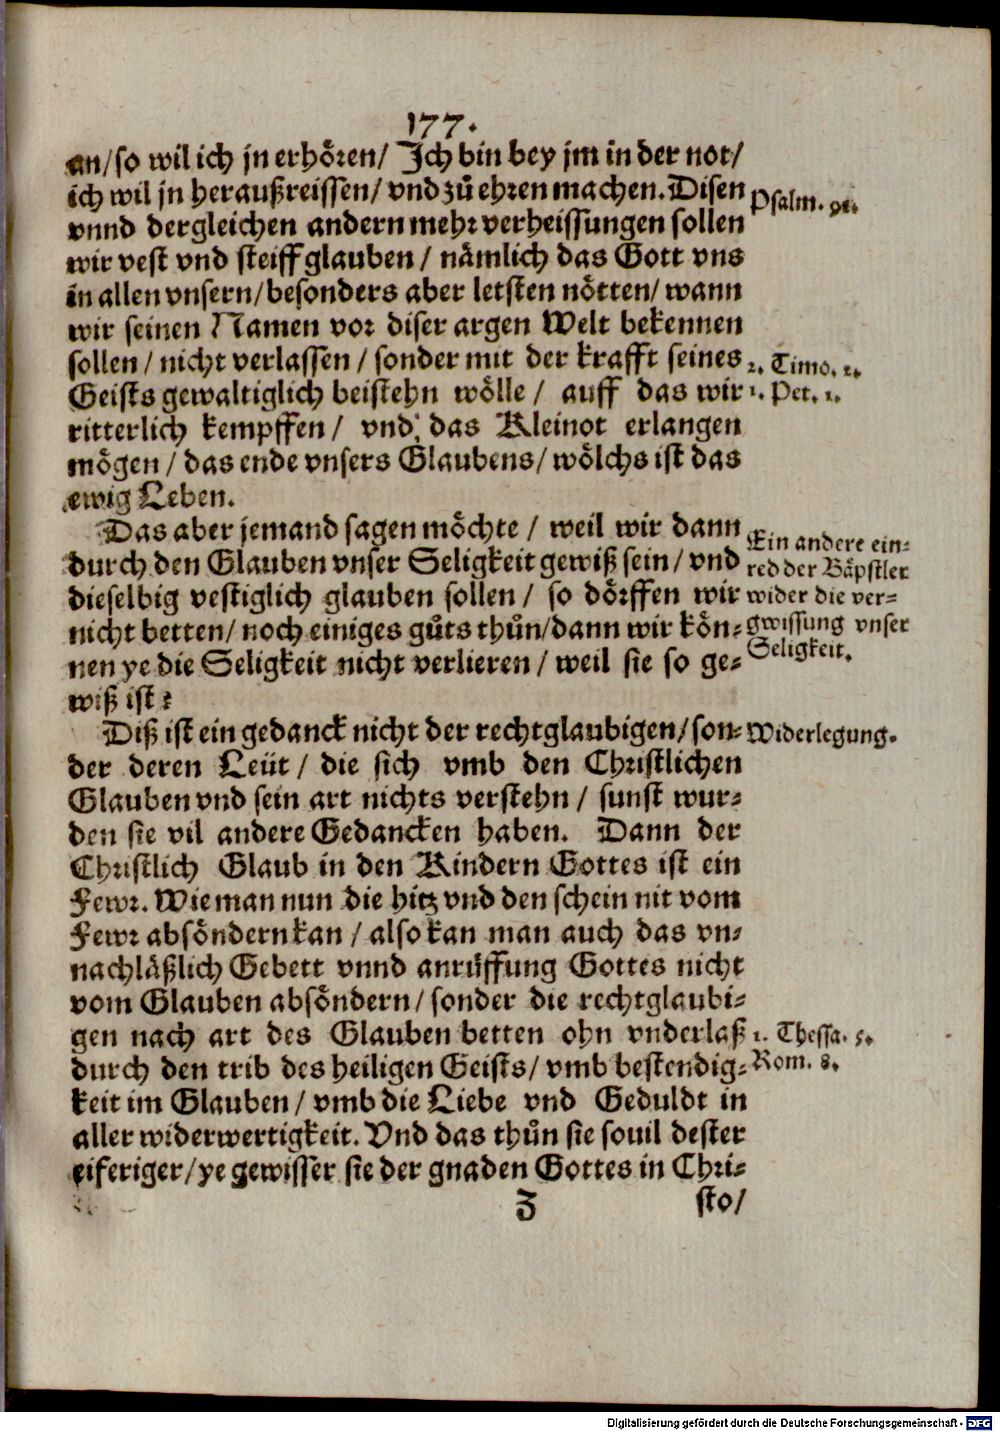 177.
an/so wil ich jn erhören/ Ich bin bey jm in der not/
ich wil jn heraußreissen/ vnd zů ehren machen. Disen
Psalm. 91.
vnnd dergleichen andern mehr verheissungen sollen
wir vest vnd steiff glauben / nämlich das Gott vns
in allen vnsern/ besonders aber letsten nötten/ wann
wir seinen Namen vor diser argen Welt bekennen
sollen / nicht verlassen / sonder mit der krafft seines
2. Timo. 2.
Geists gewaltiglich beistehn wölle / auff das wir
1. Pet. 1.
ritterlich kempffen/ vnd das Kleinot erlangen
mögen / das ende vnsers Glaubens/ wölchs ist das
ewig Leben.
Das aber jemand sagen möchte / weil wir dann
Ein andere ein-
durch den Glauben vnser Seligkeit gewiß sein/ vnd
red der Bäpstler
dieselbig vestiglich glauben sollen / so dörffen wir
wider die ver-
nicht betten/ noch einiges gůts thůn/dann wir kön-
gwissung vnser
nen ye die Seligkeit nicht verlieren / weil sie so ge-
Seligkeit.
wiß ist?
Diß ist ein gedanck nicht der rechtglaubigen/ son-
Widerlegung.
der deren Leüt / die sich vmb den Christlichen
Glauben vnd sein art nichts verstehn / sunst wur-
den sie vil andere Gedancken haben. Dann der
Christlich Glaub in den Kindern Gottes ist ein
Fewr. Wie man nun die hitz vnd den schein nit vom
Fewr absöndern kan / also kan man auch das vn-
nachläßlich Gebett vnnd anrůffung Gottes nicht
vom Glauben absöndern/ sonder die rechtglaubi-
gen nach art des Glauben betten ohn vnderlaß
1. Thessa. 5.
durch den trib des heiligen Geists/ vmb bestendig-
Rom. 8.
keit im Glauben / vmb die Liebe vnd Geduldt in
aller widerwertigkeit. Vnd das thůn sie souil dester
eiferiger/ ye gewisser sie der gnaden Gottes in Chri-
Z
sto/
Digitalisierung gefördert durch die Deutsche Forschungsgemeinschaft - DFG